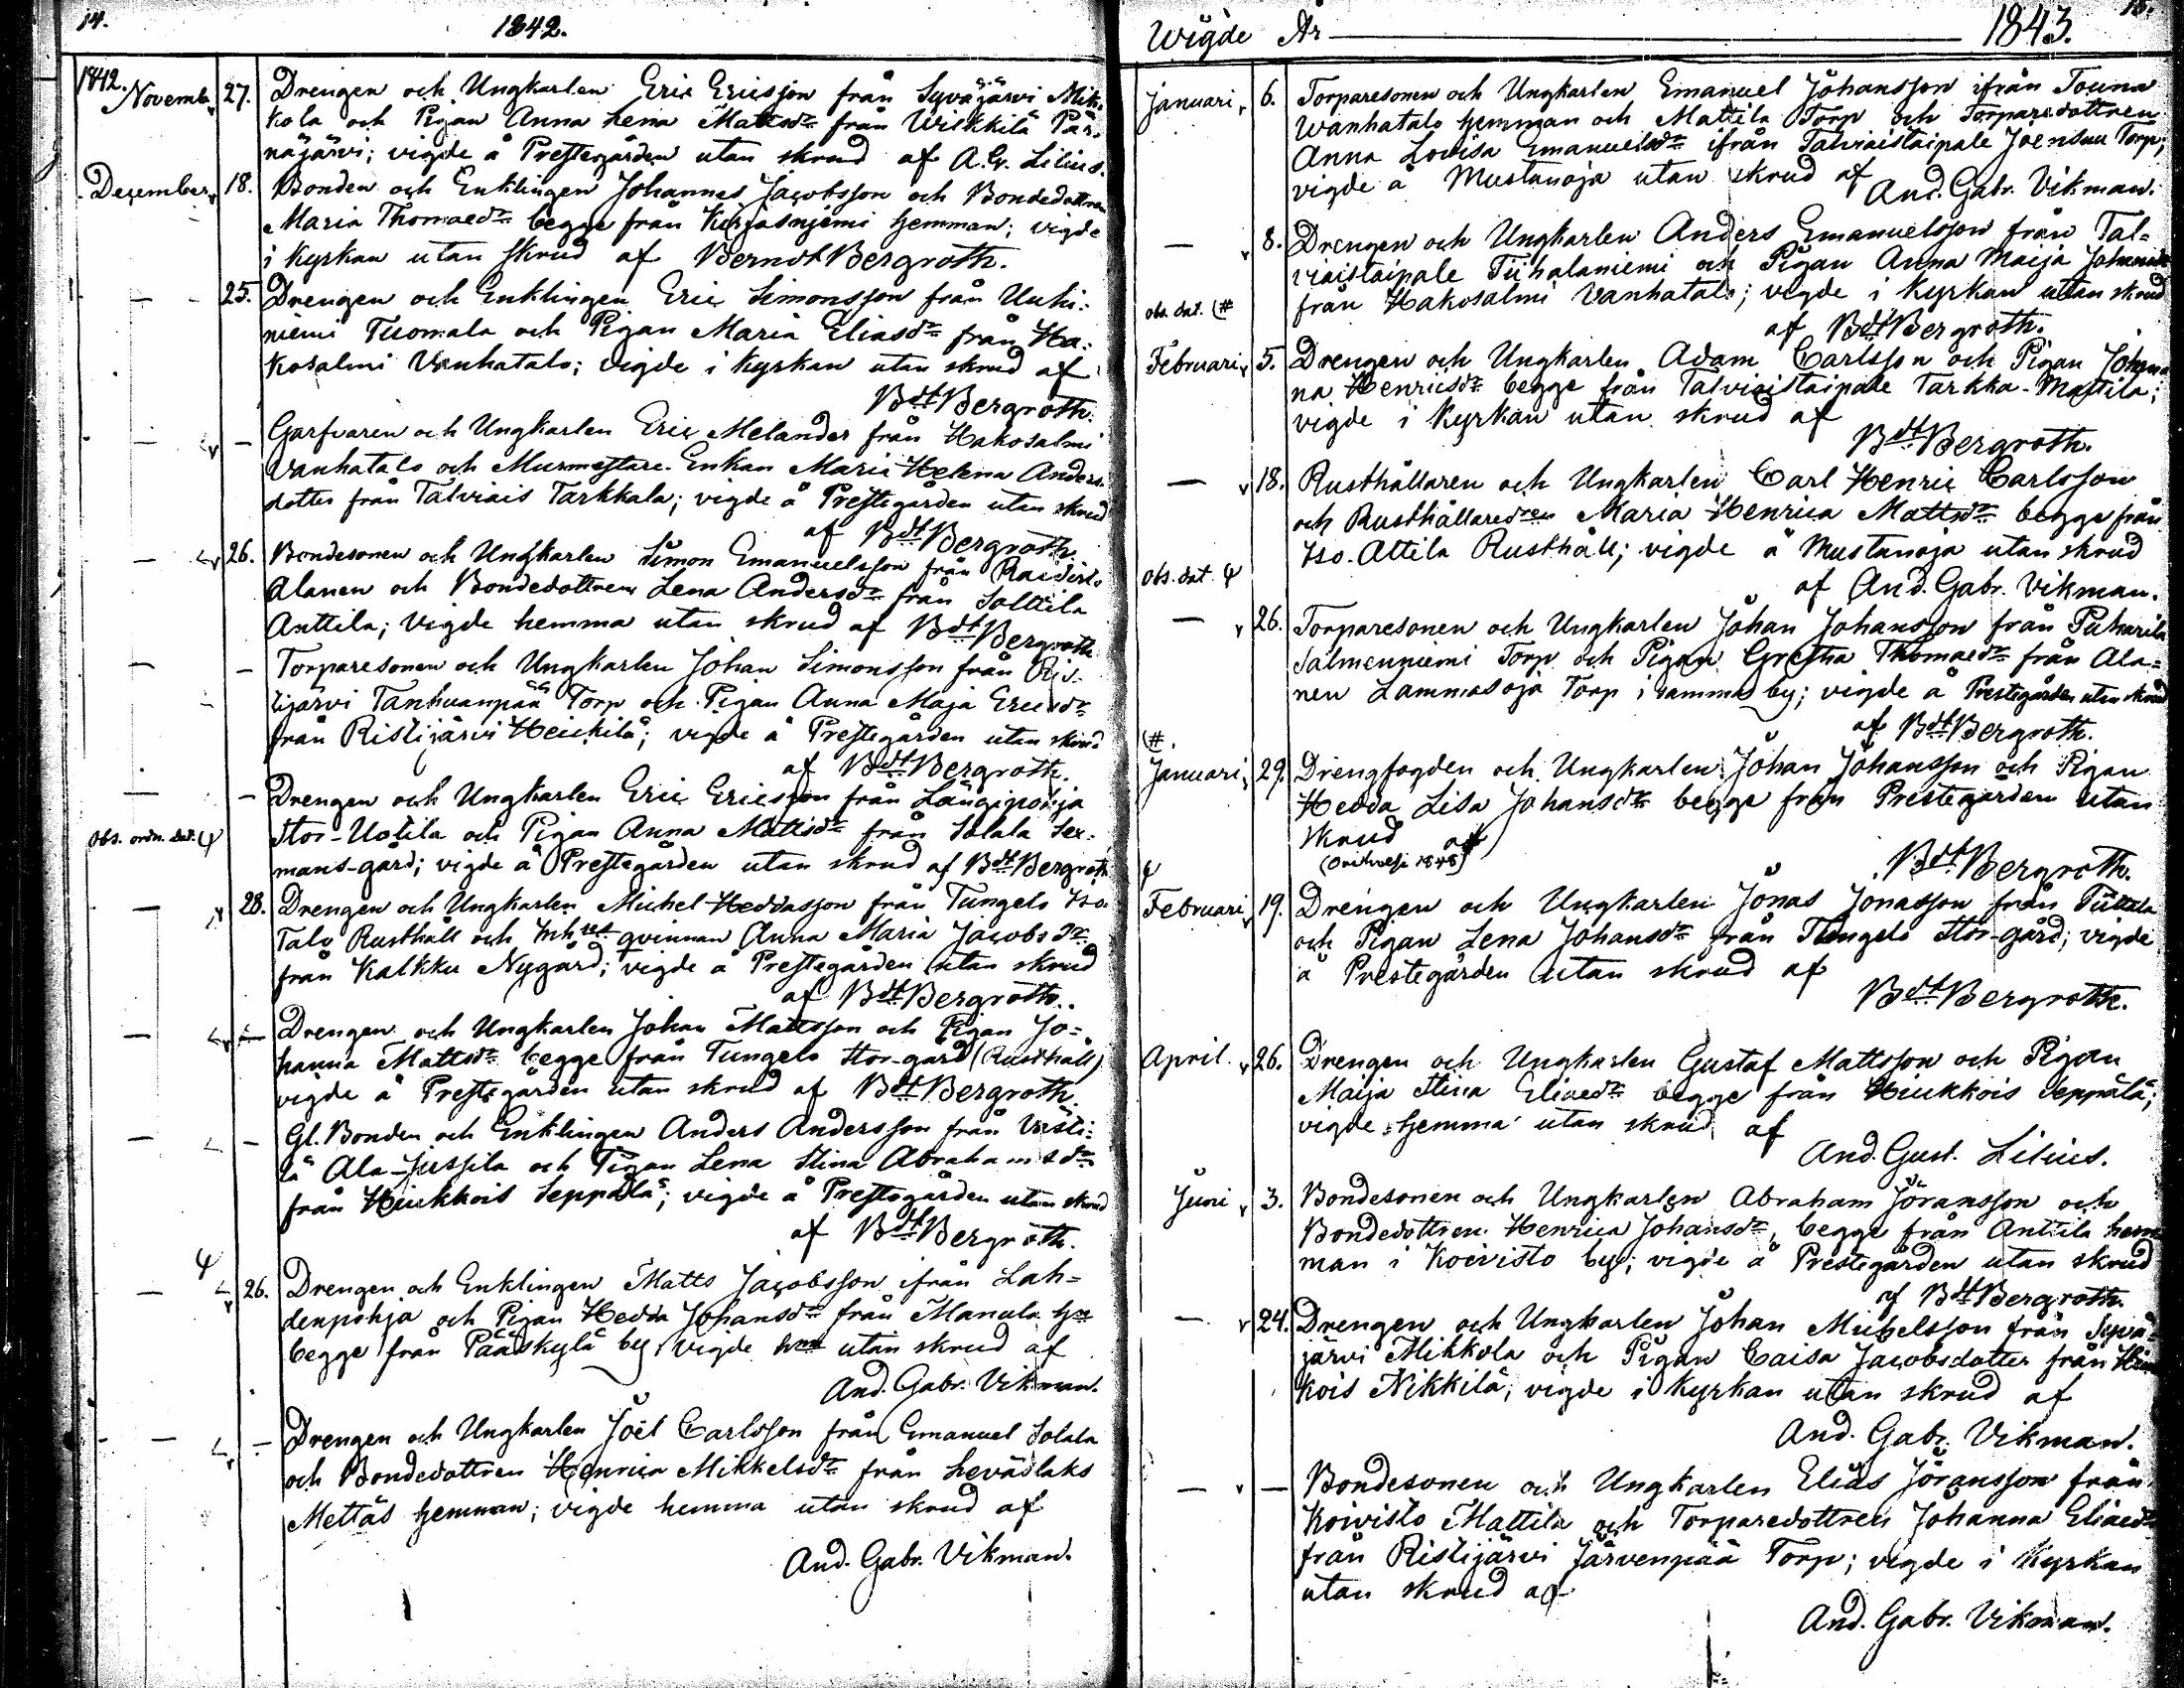 14.
1842.
1842. Novemb. 27. Drengen och Ungkarlen Eric Ericsson från Syväjärvi Mik-
kola och Pigan Anna Lena Mattsdr från Wirkkilä Pär-
näjärvi; vigde å Prestegården utan skrud af A. G. Lilius.
December 18. Bonden och Enklingen Johannes Jacobsson och Bondedottren
Maria Thomaedr begge från Kirjasniemi hemman; vigde
i Kyrkan utan skrud af Berndt Bergroth.
— 25. Drengen och Enklingen Eric Simonsson från Uuhi-
niemi Tuomala och Pigan Maria Eliasdr från Ha-
kosalmi Vanhatalo; vigde i kyrkan utan skrud af
Bdt Bergroth.
— — Garfvaren och Ungkarlen Eric Melander från Hakosalmi
Vanhatalo och Murmestare-Enkan Maria Helena Anders-
dotter från Talviais Tarkkala; vigde å Prestegården utan skrud
af Bdt Bergroth.
— 26. Bondesonen och Ungkarlen Simon Emanuelsson från
Alanen och Bondedottren Lena Andersdr från Solttila
Anttila; vigde hemma utan skrud af Bdt Bergroth
— — Torparesonen och Ungkarlen Johan Simonsson från Ris-
tijärvi Tanhuanpää Torp och Pigan Anna Maja Ericsdr
från Ristijärvi Heickilä; vigde å Prestegården utan skrud
af Bdt Bergroth.
— — Drengen och Ungkarlen Eric Ericsson från Längipohja
Stor-Uotila och Pigan Anna Mattsdr från Solala Sex-
Obs. ordn. dat. Ψ mans-gård; vigde å Prestegården utan skrud af Bdt Bergroth
— 28. Drengen och Ungkarlen Michel Heddasson från Tungelo Iso-
Talo Rusthåll och Inhses qvinnan Anna Maria Jacobsdr
från Kalkku Nygård; vigde å Prestegården utan skrud
af Bdt Bergroth.
— — Drengen och Ungkarlen Johan Mattsson och Pigan Jo-
hanna Mattsdr begge från Tungelo Stor-gård (Rusthåll)
vigde å Prestegården utan skrud af Bdt Bergroth.
— — Gl. Bonden och Enklingen Anders Andersson från Västi-
lä Ala-Jussila och Pigan Lena Stina Abrahamsdr
från Hiukkois Seppälä; vigde å Prestegården utan skrud
af Bdt Bergroth.
Ψ
— 26. Drengen och Enklingen Matts Jacobsson ifrån Lah-
denpohja och Pigan Hedda Johansdr från Manula
begge från Pääskylä by; vigde hma utan skrud af
And. Gabr. Vikman.
— — Drengen och Ungkarlen Joël Carlsson från Emanuel Solala
och Bondedottren Henrica Mikkelsdr från Leväslaks
Mettäs hemman; vigde hemma utan skrud af
And. Gabr. Vikman.
Wigde År 1843. 15.
Januari 6. Torparesonen och Ungkarlen Emanuel Johansson ifrån Touna
Wanhatalo hemman och Mattila Torp och Torparedottren
Anna Lovisa Emanuelsdr ifrån Talviaistaipale Joensuu Torp;
vigde å Mustanoja utan skrud af
And. Gabr. Vikman.
— 8. Drengen och Ungkarlen Anders Emanuelsson från Tal-
viaistaipale Tiihalaniemi och Pigan Anna Maija Johansdr
obs. dat. (# från Hakosalmi Vanhatalo; vigde i Kyrkan utan skrud
af Bdt Bergroth.
Februari 5. Drengen och Ungkarlen Adam Carlsson och Pigan Johan-
na Henricsdr begge från Talviaistaipale Tarkka-Mattila;
vigde i Kyrkan utan skrud af
Bdt Bergroth.
— 18. Rusthållaren och Ungkarlen Carl Henric Carlsson
och Rusthållaredren Maria Henrica Mattsdr begge från
Iso-Attila Rusthåll; vigde å Mustanoja utan skrud
Obs. dat. Ψ af And. Gabr. Vikman.
— 26. Torparesonen och Ungkarlen Johan Johansson från Puharila
Salmenniemi Torp och Pigan Gretha Thomaedr från Ala-
nen Lammasoja Torp i samma by; vigde å Prestegården utan skrud
af Bdt Bergroth.
(#.
Januari 29. Drengfogden och Ungkarlen Johan Johansson och Pigan
Hedda Lisa Johansdr begge från Prestegården utan
skrud af
Bdt Bergroth.
Ψ
Februari 19. Drengen och Ungkarlen Jonas Jonasson från
och Pigan Lena Johansdr från Tungelo Stor-gård; vigde
å Prestegården utan skrud af
Bdt Bergroth.
April 26. Drengen och Ungkarlen Gustaf Mattsson och Pigan
Maija Stina Eliaedr begge från Hiukkois Seppälä;
vigde hemma utan skrud af
And. Gust. Lilius.
Juni 3. Bondesonen och Ungkarlen Abraham Jöransson och
Bondedottren Henrica Johansdr, begge från Anttila hem-
man i Koivisto by; vigde å Prestegården utan skrud
af Bdt Bergroth.
— 24. Drengen och Ungkarlen Johan Michelsson från Syvä-
järvi Mikkola och Pigan Caisa Jacobsdotter från Hiuk-
kois Nikkilä; vigde i Kyrkan utan skrud af
And. Gabr. Vikman.
— — Bondesonen och Ungkarlen Elias Jöransson från
Koivisto Mattila och Torparedottren Johanna Eliaedr
från Ristijärvi Järvenpää Torp; vigde i Kyrkan
utan skrud af
And. Gabr. Vikman.